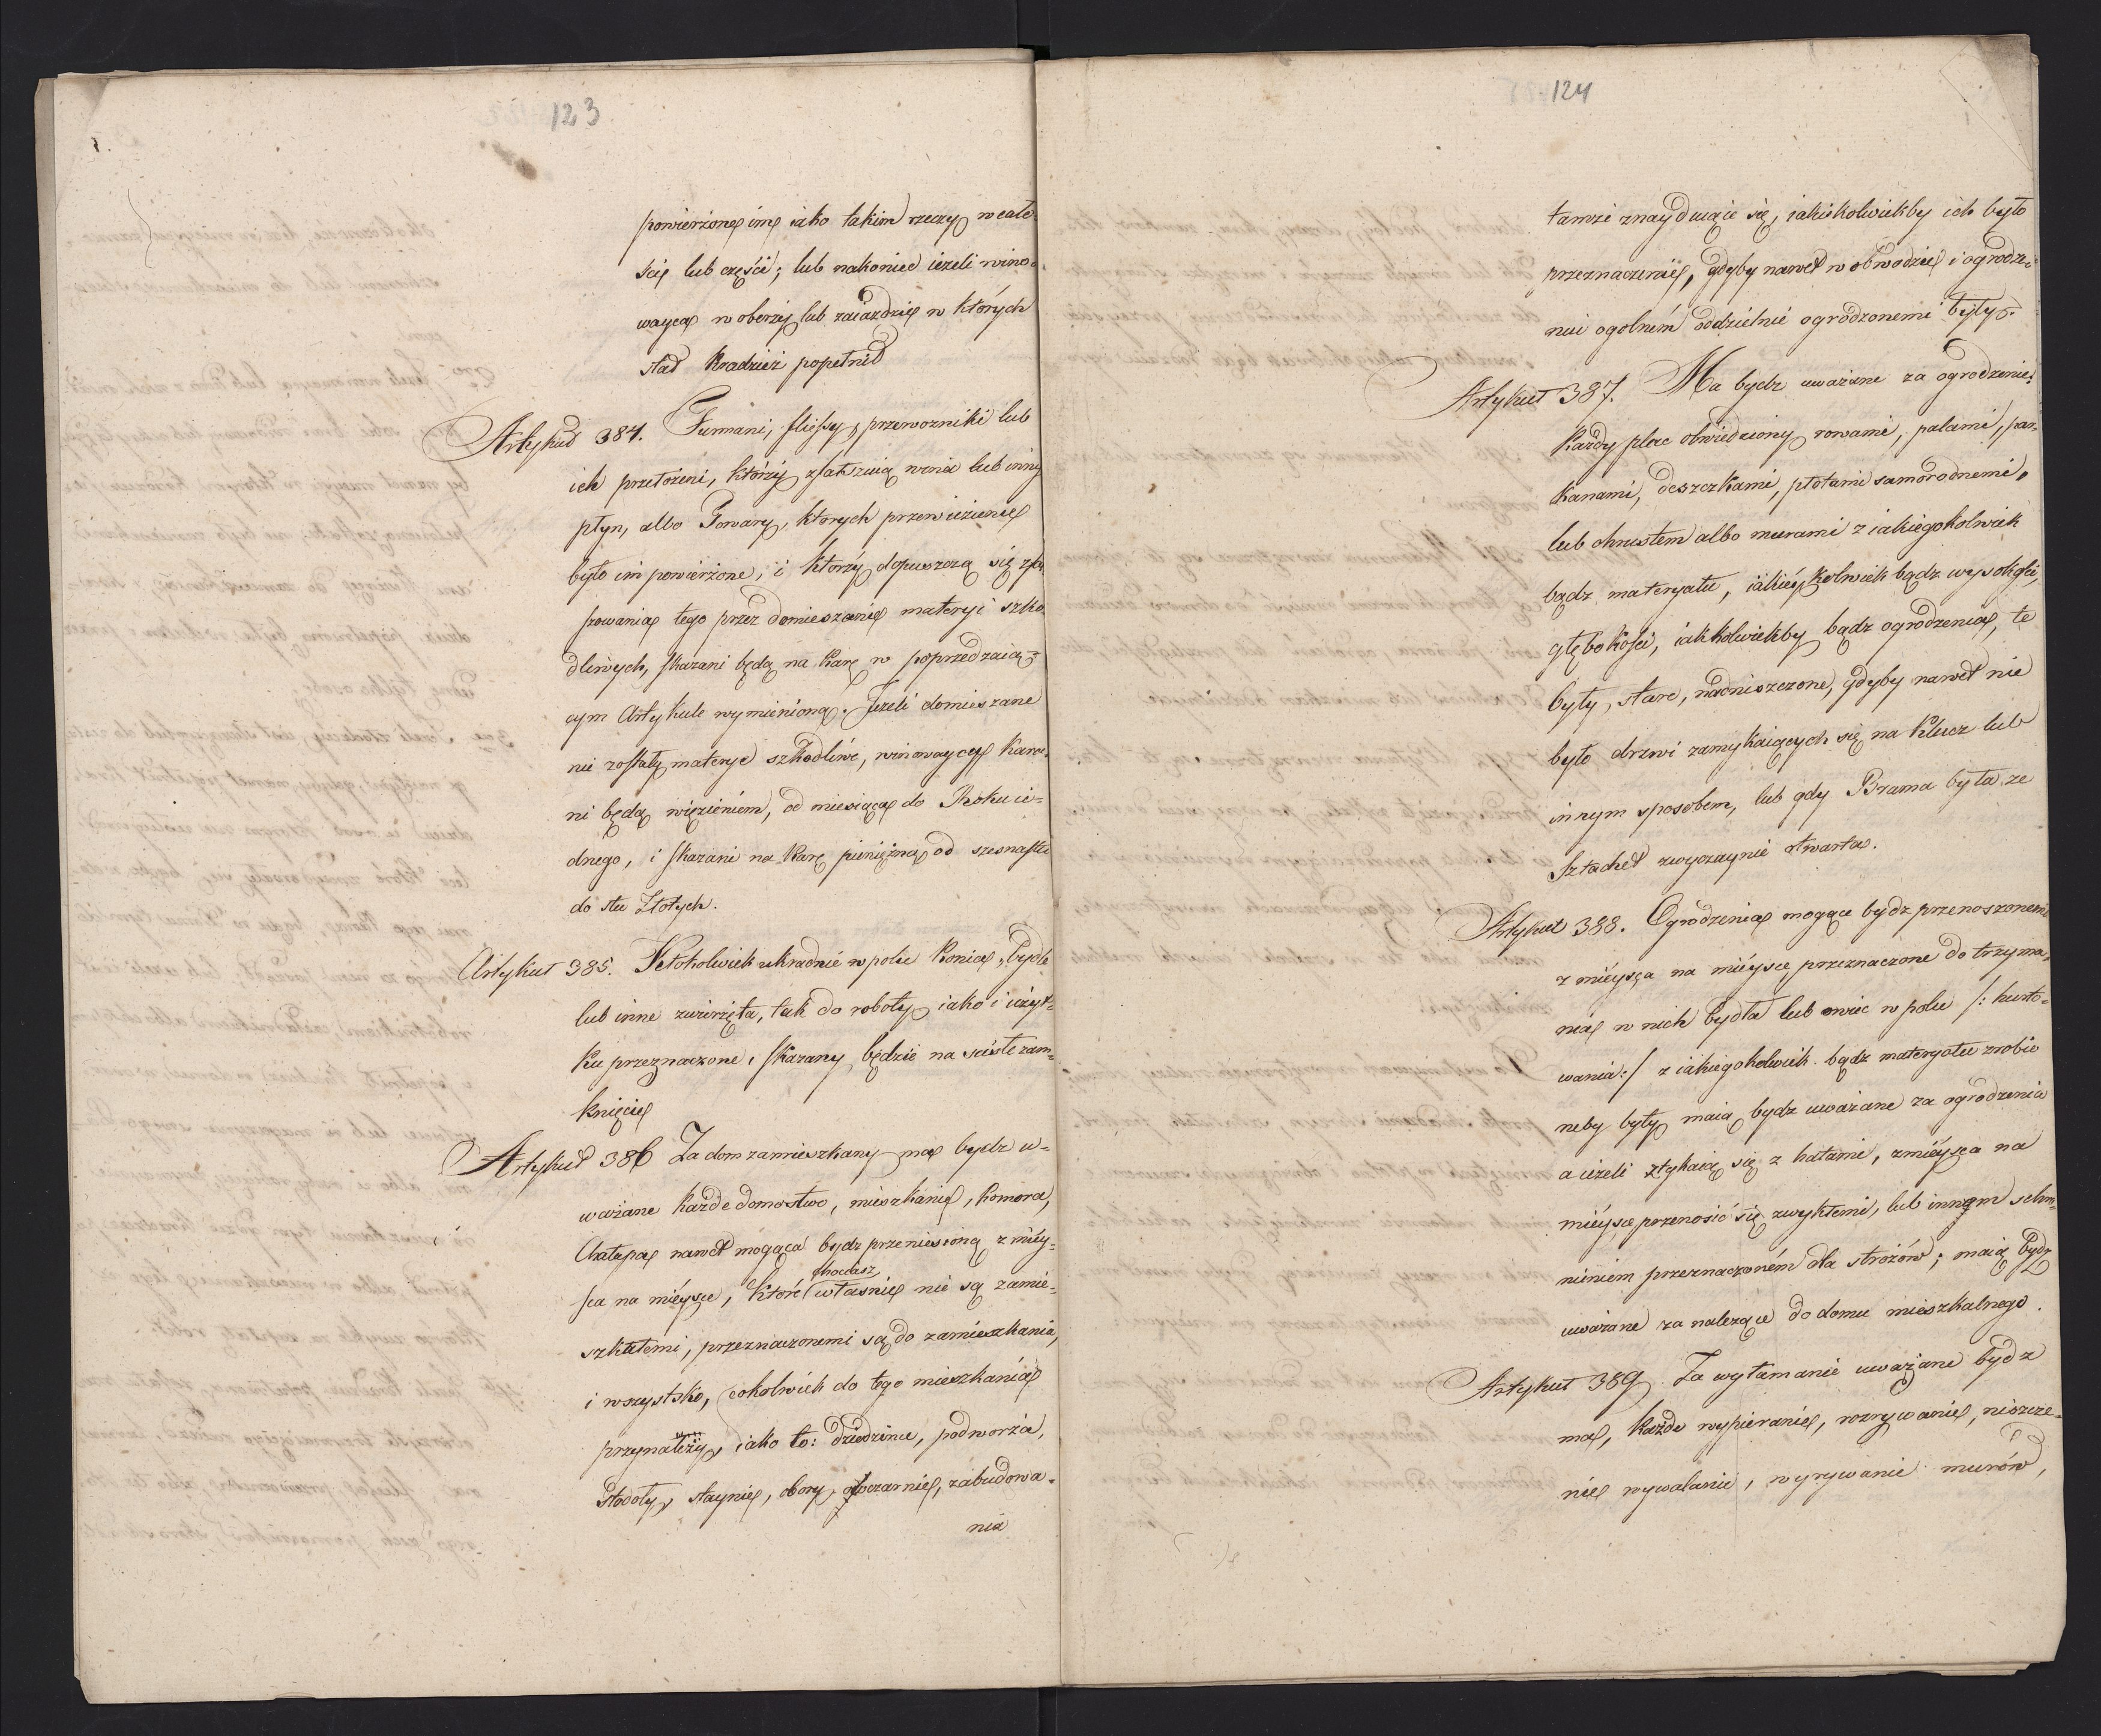 123
powierzone im iako takim rzeczy w cało-
ści lub części; lub nakoniec ieżeli wino-
wayca w oberży lub zaiazdzie w których
stał kradzież popełnił
Artykuł 384. Furmani, flissy, przewozniki lub
ich przełożeni, którzy zfałszuią wina lub inny
płyn, albo Towary, których przewiezienie
było im powierzone, i którzy dopuszczą się
sowania tego przez domieszanie materyi szko-
dliwych, skazani będą na karę w poprzedzaią-
cym Artykule wymienioną. Jeżeli domieszane
nie zostały materye szkodliwe, winowaycy kara-
ni będą więzieniem, od miesiąca do Roku ie-
dnego, i skazani na karę pieniężną od szesnastu
do stu Złotych.
Artykuł 385. Ktokolwiek ukradnie w polu konia, bydle
lub inne zwierzęta, tak do roboty iako i użyt-
ku przeznaczone, skazany będzie na ścisłe zam-
knięcie
Artykuł 386 Za dom zamieszkany ma bydz u-
ważane każde domostwo, mieszkanie, komora,
Chałupa nawet mogąca bydz przeniesioną z miéy-
sca na miéysce, które chociasz właśnie nie są zamie-
szkałemi, przeznaczonemi są do zamieszkania,
i wszystko, cokolwiek do tego mieszkania
przynależy, iako to: dziedzince, podworża,
stodoły, staynie, obory, owczarnie, zabudowa-
nia
124
tamże znayduiące się, iakiekolwiekby ich było
przeznaczenie, gdyby nawet w obwodzie i ogrodze-
niu ogolném oddzielnie ogrodzonemi były.
Artykuł 387. Ma bydz uważane za ogrodzenie,
Każdy plac obwiedziony rowami, palami, par-
kanami, deszczkami, płotami samorodnemi,
lub chrustem albo murami z iakiegokolwiek
bądz materyału, iakiéykolwiek bądz wysokości,
głębokości, iakkolwiekby bądz ogrodzenia, te
były, stare, nadniszczone, gdyby nawet nie
było drzwi zamykaiących się na klucz lub
innym sposobem, lub gdy Brama była ze
Sztachet zwyczaynie otwarta.
Artykuł 388. Ogrodzenia mogące bydz przenoszonemi
z miéysca na miéysce, przeznaczone do trzyma-
nia w nich bydła lub owiec w polu /: kuszo-
wania :/ z iakiegokolwiek bądz materyału zrobio
neby były maią bydz uważane za ogrodzenia
a ieżeli stykaią się z hatami, z miéysca na
miéysce przenosić się zwykłemi, lub innym schro-
nieniem przeznaczoném dla strożów; maią bydz
uważane za należące do domu mieszkalnego.
Artykuł 389. Za wyłamanie uważane bydz
ma, każde wypieranie, rozrywanie, niszcze-
nie wywalanie, wyrywanie murów,